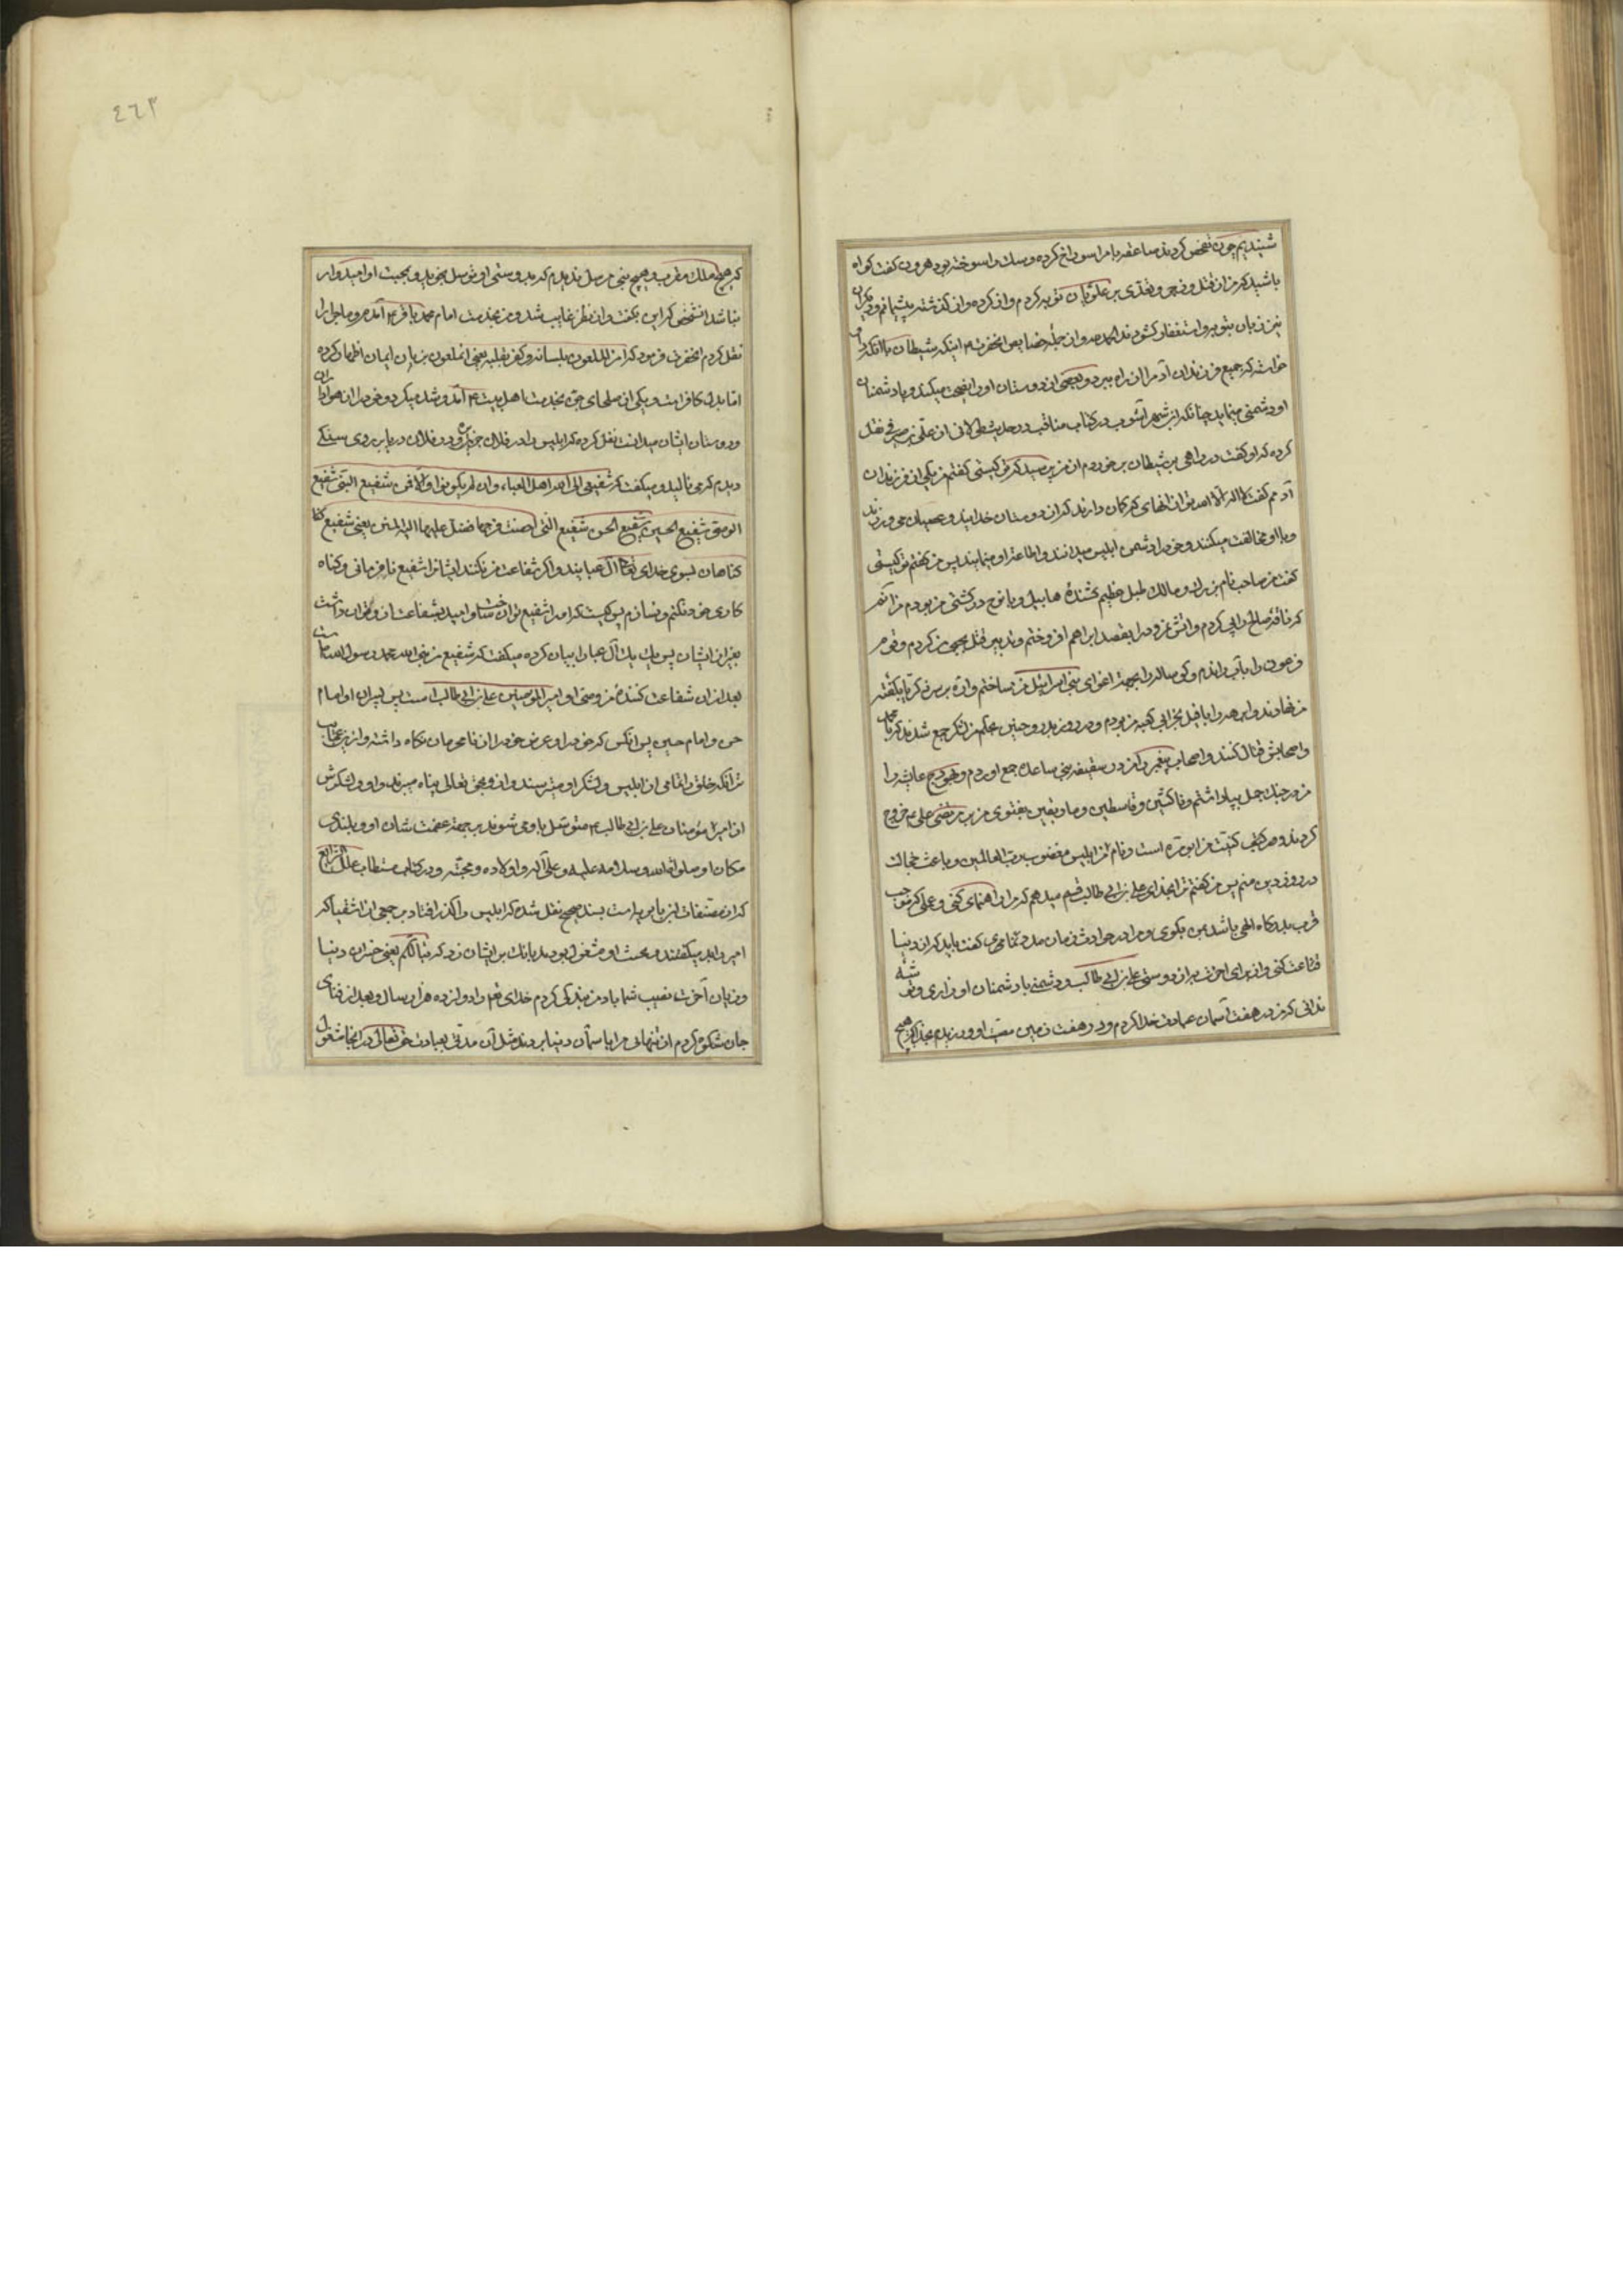 شنیدیم چون تفحص کردند صاعقه بام را سوراخ کرده و سک را سوخته بود هرون کفت کواه
باشید که من از قتل و زجر و تعدی بر علویان توبه کردم و از کرده و از کذشته پشیمانم و دیکران
نیز زبان بتوبه و استغفار کشودند الحمد لله و از جمله خصایص آنحضرت اینکه شیطان با آنکه
خواسته که جمیع فرزندان آدم را از راه ببرد و بعضی از دوستان او را نصیحت میکند و با دشمنان
او دشمنی مینماید چنانکه ابن شهر آشوب در کتاب مناقب در حدیث طولانی از علی بن محمد صوفی نقل
کرده که او کفت در راهی بر شیطان برخوردم از من پرسید که تو کیستی کفتم من یکی از فرزندان
آدمم کفت لا اله الا الله تو از آنهایی که کمان دارند که از دوستان خدایند و عصیان می ورزند
و با او مخالفت میکنند و خود را دشمن ابلیس میدانند و اطاعت او مینمایند پس من بکفتم تو کیستی
کفت من صاحب نام بزرک و مالک طبل عظیم کشندهٔ هابیل و با نوح در کشتی من بودم من آنم
که ناقه صالح را پی کردم و آتش نمرود را بقصد ابراهیم افروختم و تدبیر قتل یحیی من کردم و قوم
فرعون را بآب راندم و کوساله را بجهة اغوای بنی اسرائیل من ساختم و اره بر سر زکریا بکفته
من نهادند و ابرهه را با فیل بخرابی کعبه من بودم و در روز بدر و حنین بحکم من لشکر جمع شدند که با محمد
و اصحابش قتال کنند و اصحاب پیغمبر را من در سقیفه بنی ساعده جمع اوردم و هودج عایشه را
من در جنک جمل بپا داشتم و ناکثین و قاسطین و مارقین بفتوی من بر مرتضی علی خروج
کردند و من کنیت من ابو مره است و نام من ابلیس مغضوب رب العالمین و باعث خجالت
در روز دین منم پس من کفتم ترا بخدای علی بن ابی طالب قسم میدهم که مرا راهنمایی کنی و عملی که موجب
قرب بدرکاه الهی باشد بمن بکوی و مرا در حوادث زمان مدد نمایی کفت باید که از دنیا
قناعت کنی و از برای آخرت به از دوستی علی بن ابی طالب و دشمنی با دشمنان او نداری و توشه
ندانی که من در هفت آسمان عبادت خدا کردم و در هفت زمین معصیت او ورزیدم بخدا که هیچ
٤٦٣
که هیچ ملک مقرب و هیچ نبی مرسل ندیدم که بدوستی او توسل نجوید و بمحبت او امیدوار
نباشد آنشخص که این بکفت و از نظر غایب شد و من بخدمت امام محمد باقر آمدم و ماجرا را
نقل کردم آنحضرت فرمود که امن الملعون بلسانه و کفر بقلبه یعنی آنملعون بزبان ایمان اظهار کرده
اما بدل کافر است و یکی از صلحای جن بخدمت اهل بیت آمد و شد میکرد و خود را از هواداران
و دوستان ایشان میدانست نقل کرده که ابلیس را در فلان جزیره و در فلان دریا بر روی سنکی
دیدم که می نالید و میکفت که شفیعی الی الله اهل العباء وان لم یکونوا والا فمن شفیع النبی شفیع
الوصی شفیع الحسین شفیع الحسن شفیع التی احصنت فرجها فضل علیها اله المنن یعنی شفیع
کناهان بسوی خدای تعالی آل عبایند و اکر شفاعت من نکنند ایشانرا شفیع نافرمانی و کناه
کاری خود نکنم و نسازم پس کیست که او را شفیع توان ساخت و امید بشفاعت از و توان داشت
بغیر از ایشان پس یک یک آل عبا را بیان کرده میکفت که شفیع من نبی الله محمد رسول الله است
بعد از آن شفاعت کنندهٔ من وصی او امیر المؤمنین علی بن ابی طالب است پس پسران او امام
حسن و امام حسین پس آنکس که خود را و عرض خود را از نامحرمان نکاه داشته و از من عجایب
تر آنکه خلق را تمامی از ابلیس و لشکر او میترسند و از و بحق تعالی پناه میبرند و او و لشکرش
از امیر مؤمنان علی بن ابی طالب متوسل باو می شوند بر جهة عظمت شان او و بلندی
مکان او صلوات الله و سلامه علیه و علی آله و اولاده و محبیه و در کتاب مستطاب علل الشرایع
که از مصنفات ابن بابویه است بسند صحیح نقل شده که ابلیس را کذر افتاد بر جمعی از اشقیا که
امیر را بد میکفتند و بخبث او مشغول بودند بانک بر ایشان زد که تبا لکم یعنی خسران دنیا
و زیان آخرت نصیب شما باد من بندکی کردم خدای تعالی را دوازده هزار سال و بعد از فنای
جان شکوه کردم از تنهایی مرا باسمان دنیا بردند مثل آن مدتی بعبادت حق تعالی در آنجا مشغول